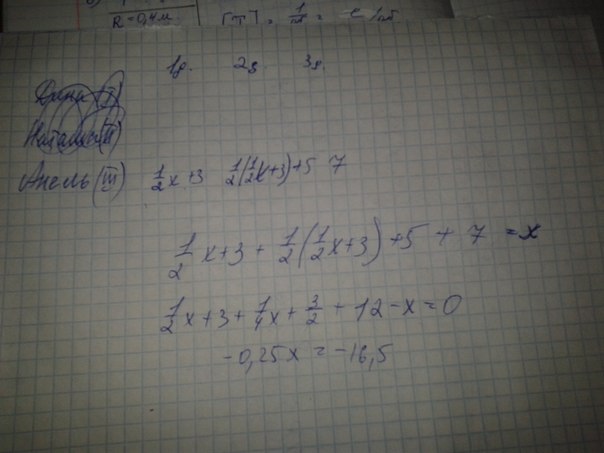 R = 0,4 м. [T] = 1/m = c/м
1д. 2д. 3д.
(I)
Наталья (II)
Анель (III) 1/2x+3 1/2(1/2x+3)+5 7
1/2 x+3 + 1/2(1/2x+3) +5 + 7 = x
1/2x+3+1/4x+3/2+12-x=0
-0,25x = -16,5